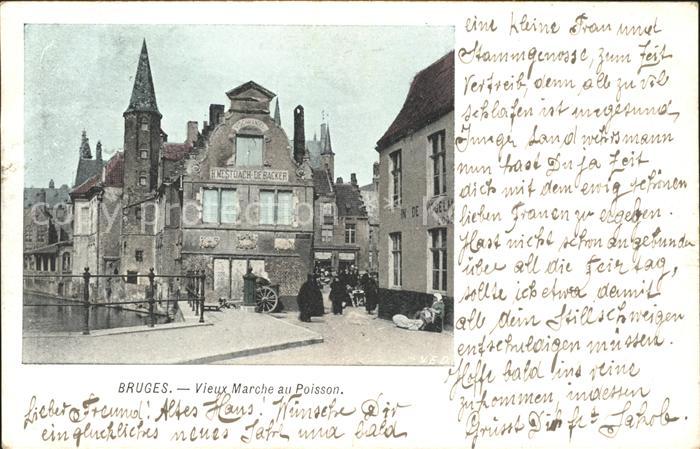 DE SCHWANE
H. MESTDACH-DE BACKER
IN DE
V.E.D.
BRUGES. — Vieux Marche au Poisson.
Lieber Freund! Altes Haus! Wünsche Dir
ein glückliches neues Jahr und bald
eine kleine Frau und
Stammgenosse, zum Zeit
Vertreib, denn all zu viel
schlafen ist ungesund,
Junger Landwehrsmann
nun hast Du ja Zeit
dich mit dem ewig schönen
lieben Frauen zu ergeben.
Hast nicht schon angebunden
über all die Feiertag,
sollte ich etwa damit
all dein Stillschweigen
entschuldigen müssen.
Hoffe bald ins reine
zu kommen, indessen
Grüsst Dich Jakob.